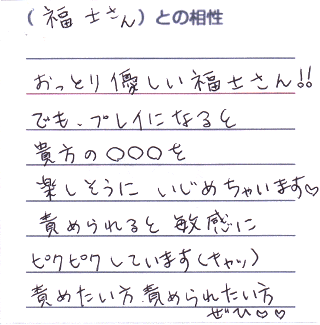 （福士さん）との相性
おっとり優しい福士さん!!
でも、プレイになると
貴方の〇〇〇を
楽しそうに いじめちゃいます♡
責められると 敏感に
ピクピクしています(キャッ)
責めたい方 責められたい方
ぜひ♡♡